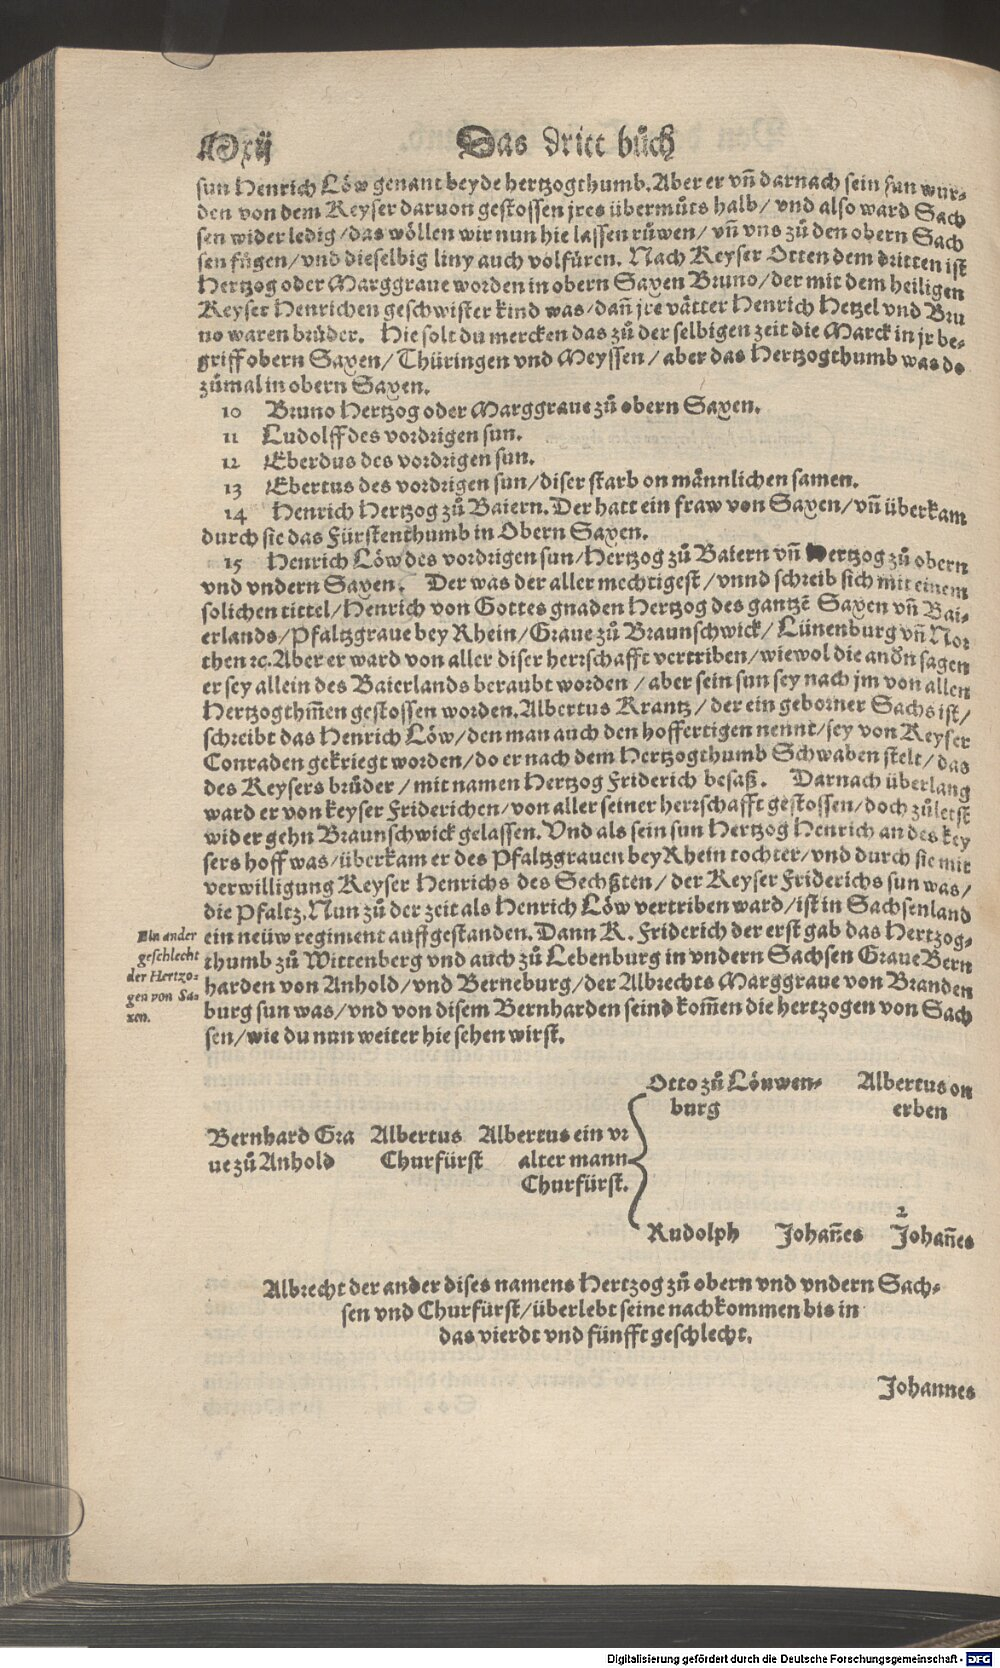 Mxij Das dritt bůch
sun Henrich Löw genant beyde hertzogthumb. Aber er vñ darnach sein sun wur-
den von dem Keyser daruon gestossen jres übermůts halb/ vnd also ward Sach
sen wider ledig/ das wöllen wir nun hie lassen rüwen/ vñ vns zů den obern Sach
sen fůgen/ vnd dieselbig liny auch volfüren. Nach Keyser Otten dem dritten ist
Hertzog oder Marggraue worden in obern Saxen Bruno/ der mit dem heiligen
Keyser Henrichen geschwister kind was/ dañ jre vätter Henrich Hetzel vnd Bru
no waren brůder. Hie solt du mercken das zů der selbigen zeit die Marck in jr be-
griff obern Saxen/ Thüringen vnd Meyssen/ aber das Hertzogthumb was do
zůmal in obern Saxen.
10 Bruno Hertzog oder Marggraue zů obern Saxen.
11 Ludolff des vordrigen sun.
12 Eberdus des vordrigen sun.
13 Ebertus des vordrigen sun/ diser starb on männlichen samen.
14 Henrich Hertzog zů Baiern. Der hatt ein fraw von Saxen/ vñ überkam
durch sie das Fürstenthumb in Obern Saxen.
15 Henrich Löw des vordrigen sun/ Hertzog zů Baiern vñ Hertzog zů obern
vnd vndern Saxen. Der was der aller mechtigest/ vnnd schreib sich mit einem
solichen tittel/ Henrich von Gottes gnaden Hertzog des gantzē Saxen vñ Bai-
erlands/ Pfaltzgraue bey Rhein/ Graue zů Braunschwick/ Lünenburg vñ Nor
then ꝛc. Aber er ward von aller diser herrschafft vertriben/ wiewol die andn̄ sagen
er sey allein des Baierlands beraubt worden/ aber sein sun sey nach jm von allen
Hertzogthm̄en gestossen worden. Albertus Krantz/ der ein geborner Sachs ist/
schreibt das Henrich Löw/ den man auch den hoffertigen nennt/ sey von Keyser
Conraden gekriegt worden/ do er nach dem Hertzogthumb Schwaben stelt/ das
des Keysers brůder/ mit namen Hertzog Friderich besaß. Darnach überlang
ward er von keyser Friderichen/ von aller seiner herrschafft gestossen/ doch zůletst
wider gehn Braunschwick gelassen. Vnd als sein sun Hertzog Henrich an des key
sers hoff was/ überkam er des Pfaltzgrauen bey Rhein tochter/ vnd durch sie mit
verwilligung Keyser Henrichs des Sechßten/ der Keyser Friderichs sun was/
die Pfaltz. Nun zů der zeit als Henrich Löw vertriben ward/ ist in Sachsenland
ein neüw regiment auffgestanden. Dann K. Friderich der erst gab das Hertzog-
thumb zů Wittenberg vnd auch zů Lebenburg in vndern Sachsen Graue Bern
harden von Anhold/ vnd Berneburg/ der Albrechts Marggraue von Branden
burg sun was/ vnd von disem Bernharden seind kom̄en die hertzogen von Sach
sen/ wie du nun weiter hie sehen wirst.
Ein ander
geschlecht
der Hertzo-
gen von Sa-
xen.
Otto zů Löuwen- Albertus on
burg erben
Bernhard Gra Albertus Albertus ein vr
ue zů Anhold Churfürst alter mann
Churfürst.
2
Rudolph Johañes Johañes
Albrecht der ander dises namens Hertzog zů obern vnd vndern Sach-
sen vnd Churfürst/ überlebt seine nachkommen bis in
das vierdt vnd fünfft geschlecht.
Johannes
Digitalisierung gefördert durch die Deutsche Forschungsgemeinschaft - DFG